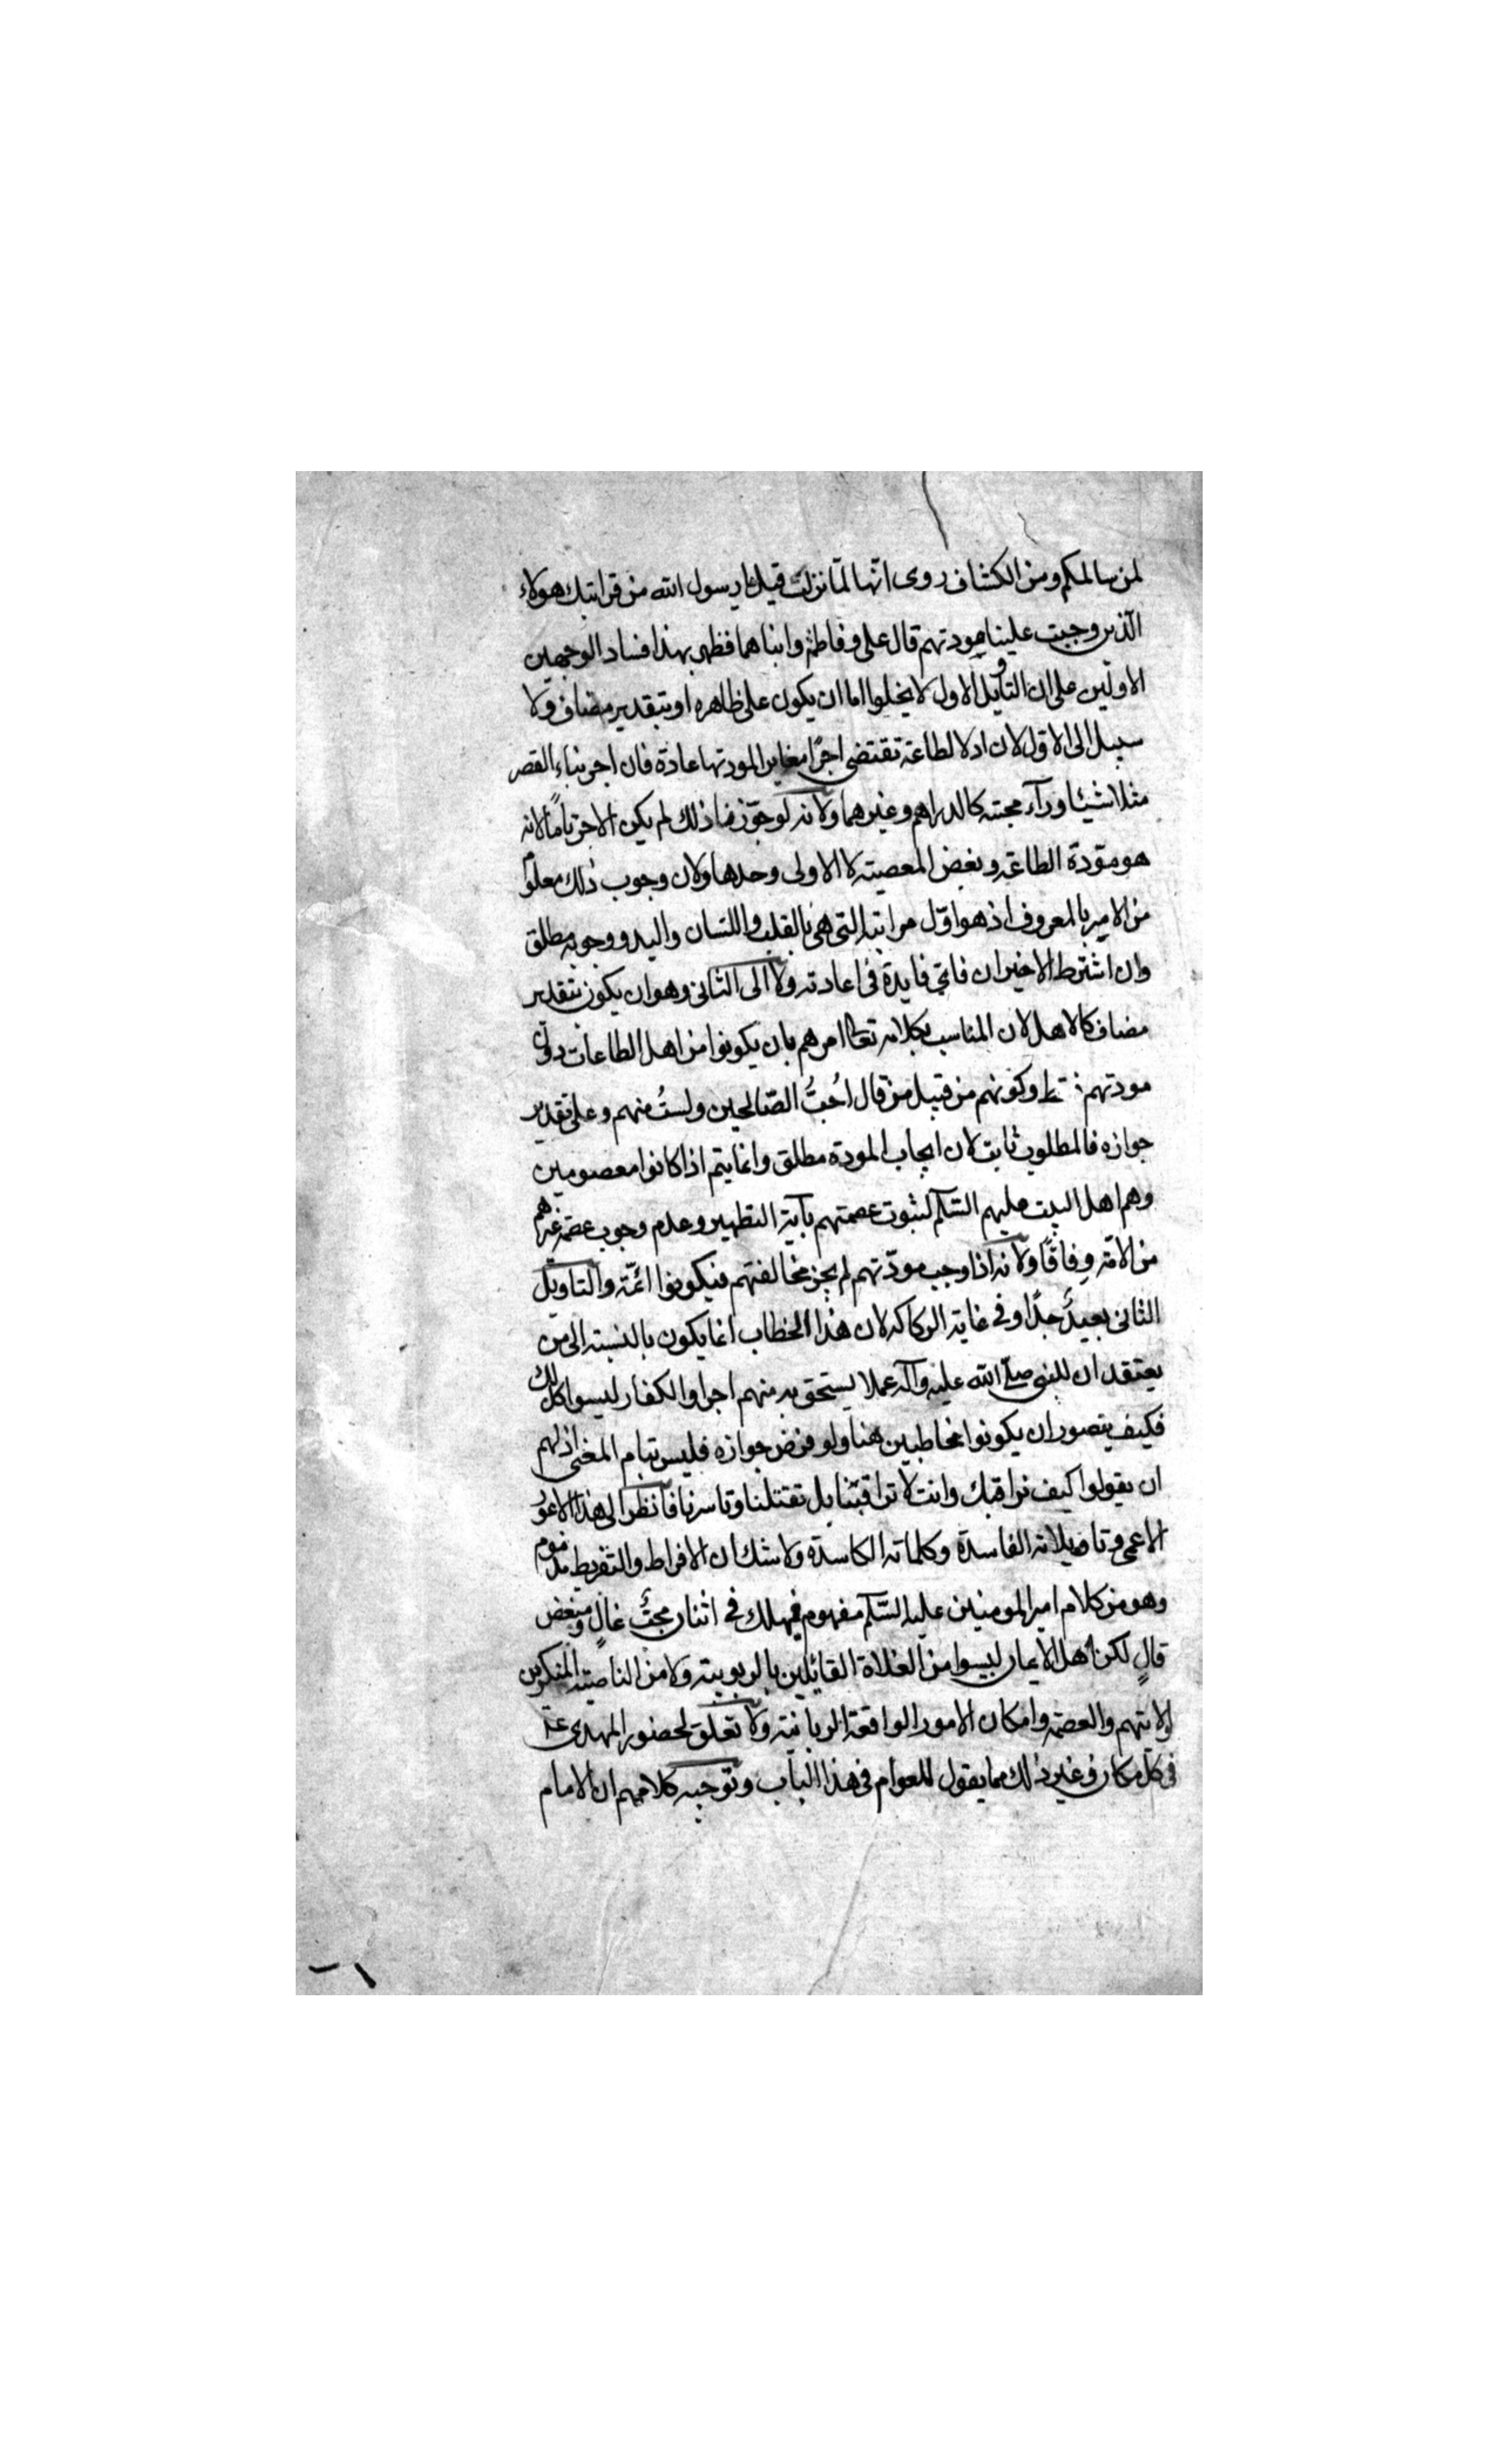 لمن سالمكم ومن الكشاف روى انّها لمّا نزلت قيل يا رسول الله من قرابتك هولاء
الّذين وجبت علينا مودتهم قال على وفاطمة وابناهما فظهر بهذا فساد الوجهين
الاولين على ان التأويل الاول لا يخلوا اما ان يكون على ظاهره او بتقدير مضاف ولا
سبيل الى الاوّل لان ادلا لطاعة تقتضى اجرًا مغاير المودتها عادة فان اجر بناء القصر
مثلا شيئا ورآء محبته كالدراهم وغيرهما ولانه لو جوّزنا ذلك لم يكن الاجر تامًا لانه
هو مودّة الطاعة وبغض المعصية لا الاولى وحدها ولان وجوب ذلك معلوم
من الامر بالمعروف اذ هو اوّل مراتبه التى هى بالقلب واللسان واليد ووجوبه مطلق
وان اشترط الاخيران فاىّ فايدة فى اعادته ولا الى الثانى وهو ان يكون بتقدير
مضاف كالاهل لان المناسب بكلامه تعالى امرهم بان يكونوا من اهل الطاعات دون
مودتهم فقط وكونهم من قبيل من قال اُحبُّ الصّالحين ولستُ منهم وعلى تقدير
جوازه فالمطلوب ثابت لان ايجاب المودة مطلق وانما يتم اذا كانوا معصومين
وهم اهل البيت عليهم السّلم لثبوت عصمتهم بآية التطهير وعدم وجوب عصمة غيرهم
من الامّة وِفاقًا ولانه اذا وجب مودّتهم لم يجز مخالفتهم فيكونوا ائمّة والتاويل
الثانى بعيدٌ جدًا وفى غاية الركاكه لان هذا الخطاب انما يكون بالنسبة الى من
يعتقد ان للنبى صلى الله عليه وآله عملا يستحق به منهم اجرا والكفار ليسوا كذلك
فكيف يتصور ان يكونوا مخاطبين هنا ولو فرض جوازه فليس بتام المعنى اذ لهم
ان يقولوا كيف نراقبك وانت لا تراقبنا بل تقتلنا وتاسرنا فانظر الى هذا الاعور
الاعمى وتاويلاته الفاسدة وكلماته الكاسدة ولا شك ان الافراط والتفريط مذموم
وهو من كلام امير المومنين عليه السّلم مفهوم فيهلك فى اثنان محبٌّ غالٍ ومبغض
قالٍ لكن اهل الايمان ليسوا من الغلاة القائلين بالربوبية ولا من الناصبة المنكرين
لولايتهم والعصمة وامكان الامور الواقعة الربانية ولا تعلق لحضور المهدى عـ
فى كل مكان وغير ذلك مما يقول للعوام فى هذا الباب وتوجيه كلامهم ان الامام